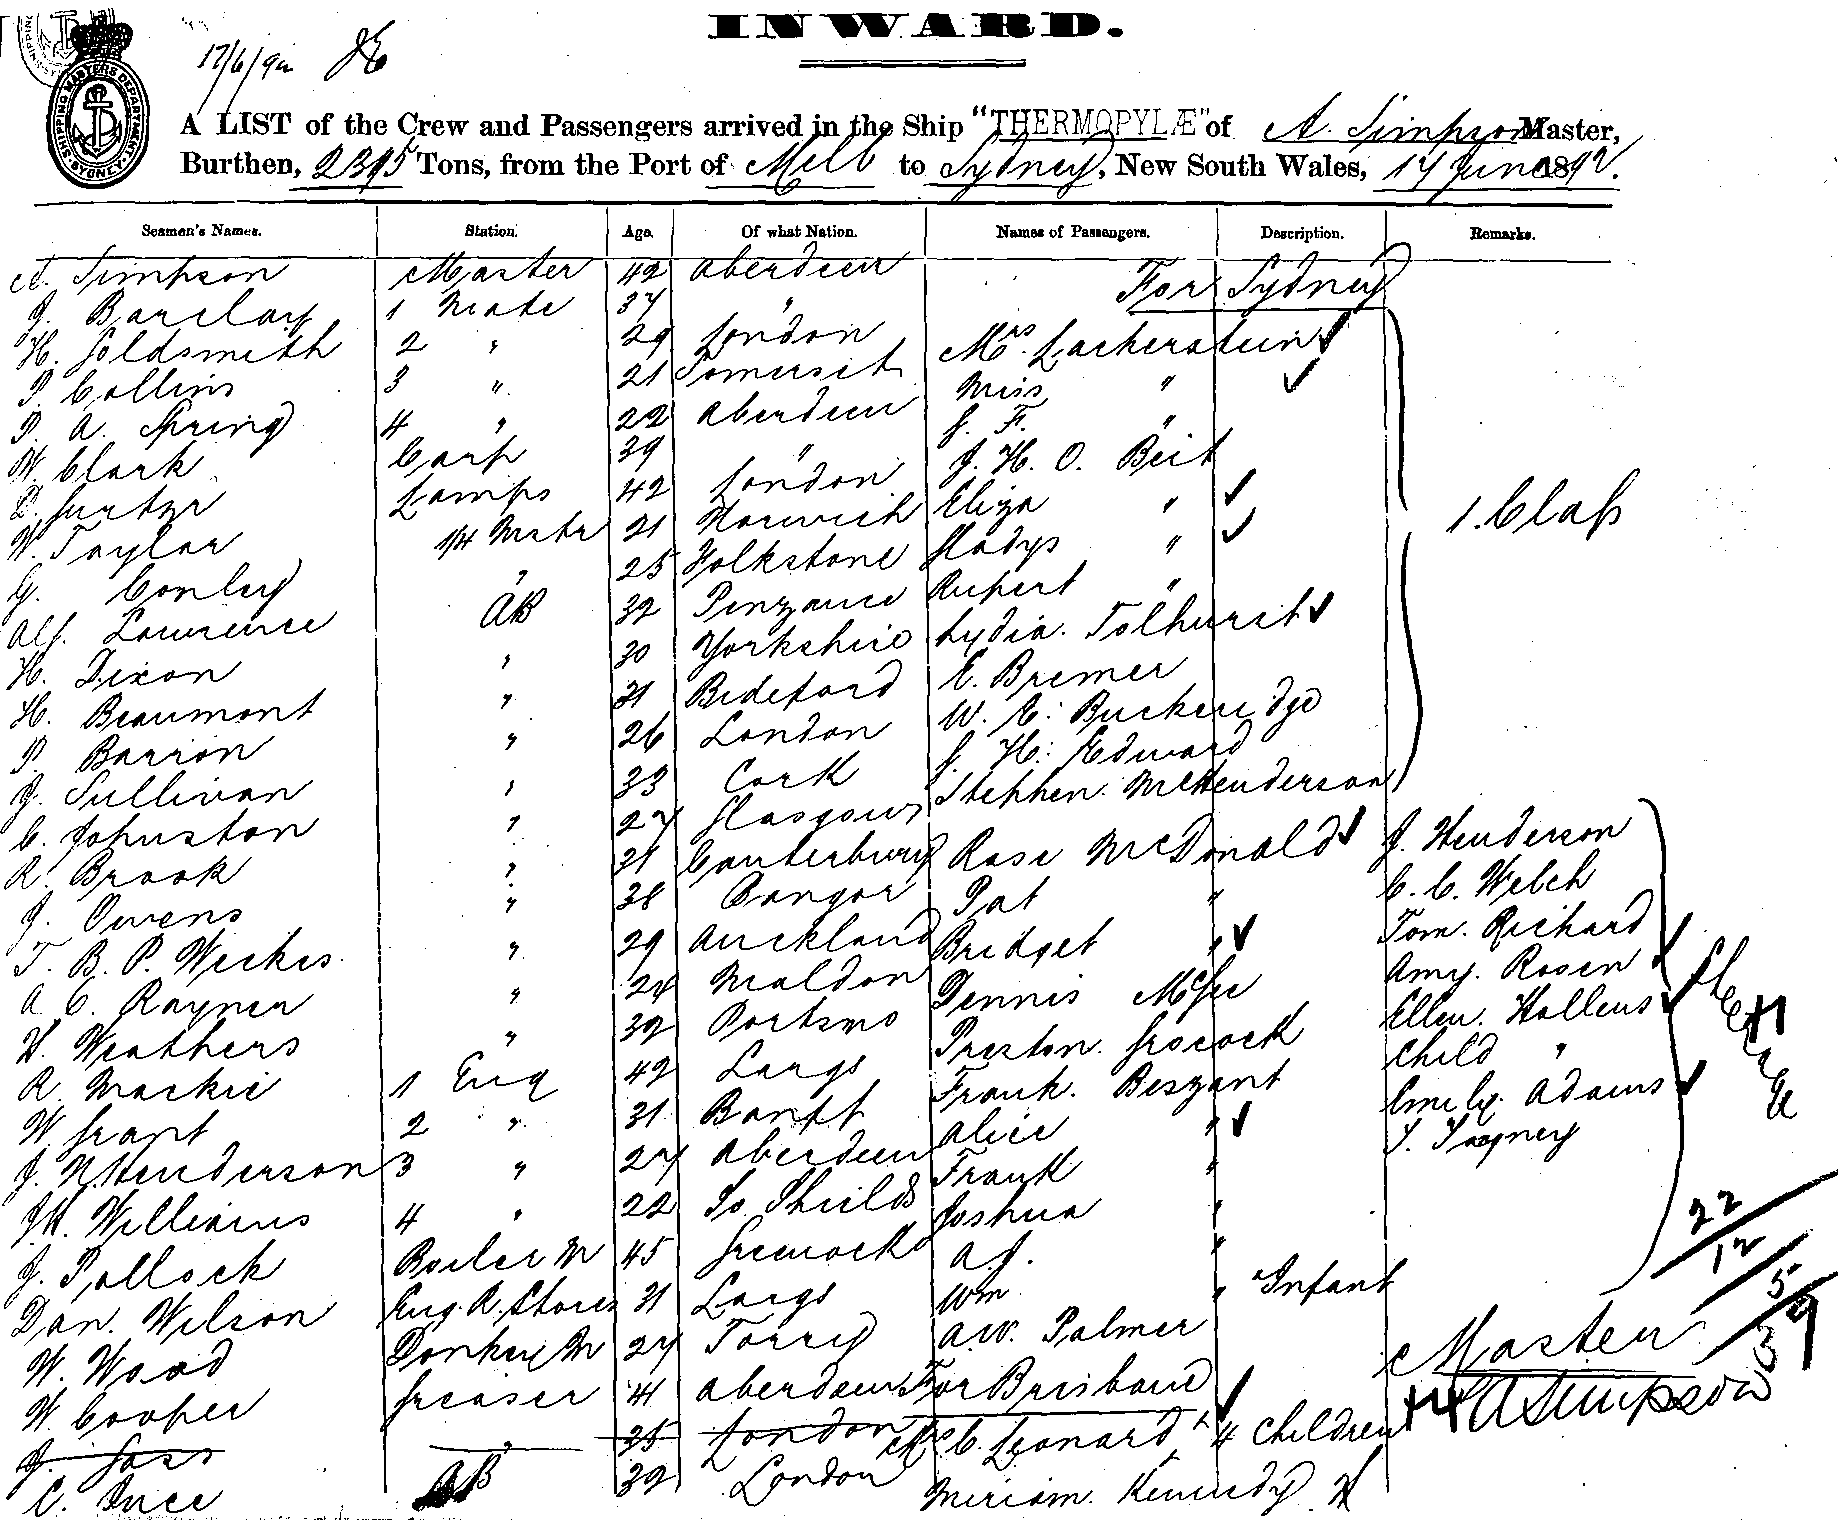 INWARD.
17/6/92
SHIPPING MASTERS DEPARTMENT SYDNEY
A LIST of the Crew and Passengers arrived in the Ship "THERMOPYLÆ" of A. Simpson Master,
Burthen, 2395 Tons, from the Port of Melb to Sydney, New South Wales, 17 June 1892.
Seamen's Names. Station. Age. Of what Nation. Names of Passengers. Description. Remarks.
A. Simpson Master 42 Aberdeen For Sydney
J. Barclay 1 Mate 37 "
H. Goldsmith 2 " 29 London Mrs. Lackerstein
P. Collins 3 " 21 Somerset Miss "
P. A. Spring 4 " 22 Aberdeen J. F. "
W. Clark Carp 39 " J. H. O. Beit
Lamps 42 London Eliza " 1. Class
W. Taylor 1/4 Mstr 21 Harwich Gladys "
G. Conley " 25 Folkstone Rupert "
Alf. Lawrence AB 32 Penzance Lydia Tolhurst
H. Dixon " 30 Yorkshire E. Bremer
H. Beaumont " 31 Bideford W. E. Buckeridge
P. Barron " 26 London J. H. Edward
J. Sullivan " 33 Cork Stephen McHenderson
C. Johnston " 27 Glasgow
R. Brook " 21 Canterbury Rose McDonald J. Henderson
J. Owens " 38 Bangor Pat " C. C. Welch
T. B. P. Weekes " 29 Auckland Bridget " Tom. Richard
A. C. Rayner " 24 Maldon Dennis McGee Amy. Rosen
W. Weathers " 32 Portsmo Preston Grocock Ellen. Hollens
R. Mackie 1 Eng 42 Largs Frank. Beszant Child "
W. Grant 2 " 31 Banff Alice " Emily Adams
J. N. Henderson 3 " 27 Aberdeen Frank " T. Tagney
J. W. Williams 4 " 22 So Shields Joshua "
J. Pollock Boiler M 45 Greenock A. J. "
Dan. Wilson Eng. R. Stores 31 Largs Wm " Infant
W. Wood Donkey M 27 Torry A. W. Palmer
W. Cooper Greaser 41 Aberdeen For Brisbane
J. Goss " 25 London Mrs C. Leonard 4 Children
C. Ince AB 32 London Miriam Kennedy
Steerage
22
12
5
39
Master
A Simpson